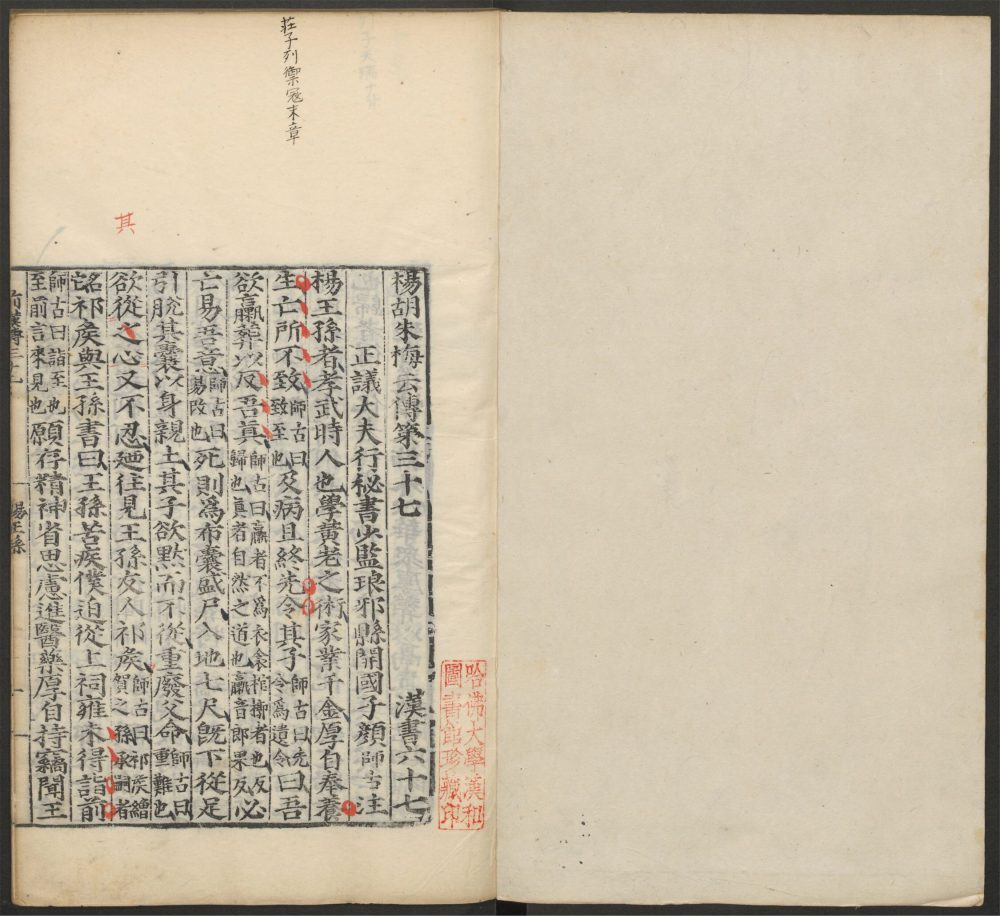 莊子列禦寇末章
其
楊胡朱梅云傳第三十七 漢書六十七
正議大夫行祕書少監琅邪縣開國子顏師古注
楊王孫者孝武時人也學黃老之術家業千金厚自奉養
生亡所不致師古曰致至也及病且終先令其子師古曰先令為遺令曰吾
欲臝葬以反吾真師古曰臝者不為衣衾棺槨者也反歸也真者自然之道也臝音郎果反必
亡易吾意師古曰易改也死則為布囊盛尸入地七尺既下從足
引脫其囊以身親土其子欲默而不從重廢父命師古曰重難也
欲從之心又不忍迺往見王孫友人祁侯師古曰祁侯繒賀之孫承嗣者
名祁侯與王孫書曰王孫苦疾僕迫從上祠雍未得詣前
師古曰詣至也至前言來見也願存精神省思慮進醫藥厚自持竊聞王
前漢傳三十七
楊王孫
一
哈佛大學漢和
圖書館珍藏印